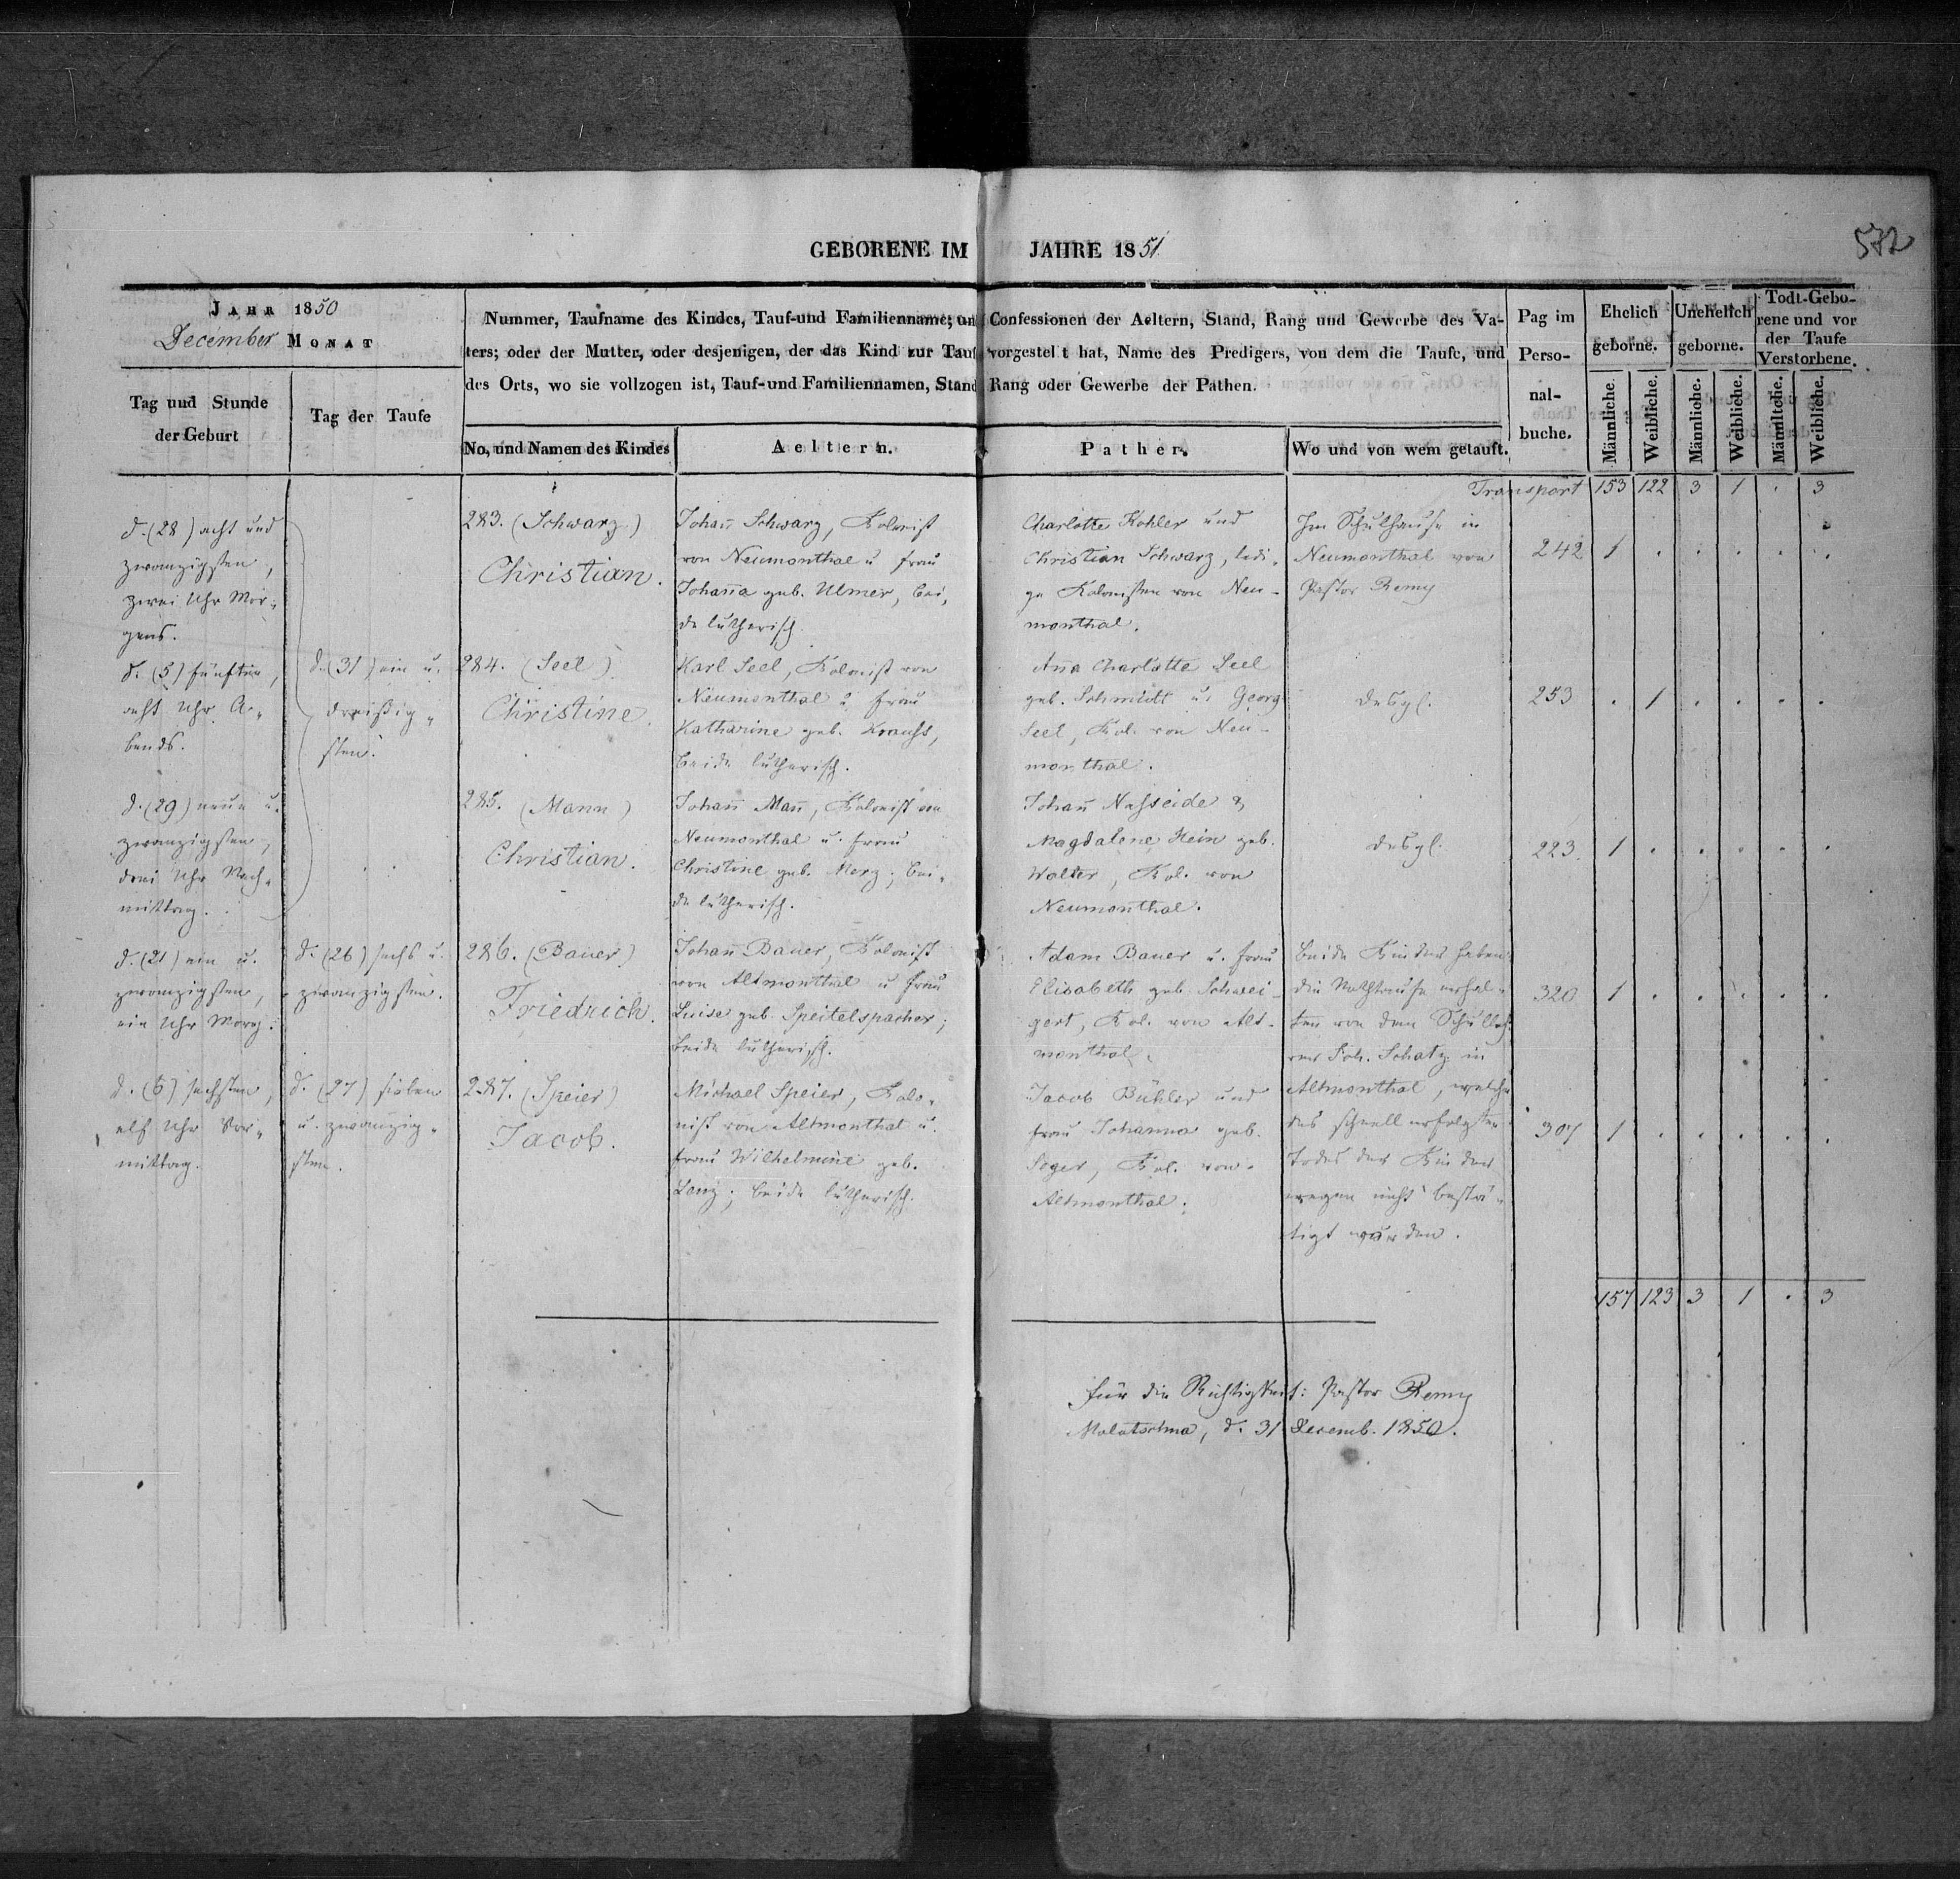 GEBORENE IM JAHRE 1851
572
JAHR 1850
December MONAT
Nummer, Taufname des Kindes, Tauf-und Familienname, und Confessionen der Aeltern, Stand, Rang und Gewerbe des Va-
ters; oder der Mutter, oder desjenigen, der das Kind zur Taufe vorgestellt hat, Name des Predigers, von dem die Taufe, und
des Orts, wo sie vollzogen ist, Tauf-und Familiennamen, Stand Rang oder Gewerbe der Pathen.
Pag im
Perso-
nal-
buche.
Ehelich
geborne.
Unehelich
geborne.
Todt-Gebo-
rene und vor
der Taufe
Verstorbene.
Tag und Stunde
der Geburt
Tag der Taufe
No, und Namen des Kindes
Aeltern.
Pather.
Wo und von wem getauft.
Männliche.
Weibliche.
Männliche.
Weibliche.
Männltche.
Weibliche.
Transport 153 122 3 1 . 3
d. (28) acht und
zwanzigsten,
zwei Uhr Mor-
gens.
283. (Schwarz)
Christian.
Johañ Schwarz, Kolonist
von Neumonthal u Frau
Johaña geb. Ulmer, bei-
de lutherisch.
Charlotte Kohler und
Christian Schwarz, ledi-
ge Kolonisten von Neu-
monthal.
Im Schulhause in
Neumonthal von
Pastor Remy
242 1 . . . . .
d. (5) fünften,
acht Uhr A-
bends.
d. (31) ein u.
dreißig-
sten.
284. (Seel)
Christine.
Karl Seel, Kolonist von
Neumonthal u Frau
Katharine geb. Krauss,
beide lutherisch.
Aña Charlotte Seel
geb. Schmidt u. Georg
Seel, Kol. von Neu-
monthal.
desgl.
253 . 1 . . . .
d. (29) neun u.
zwanzigsten,
drei Uhr Nach-
mittag.
285. (Mann)
Christian.
Johañ Mañ, Kolonist von
Neumonthal u. Frau
Christine geb. Merz; bei-
de lutherisch.
Johañ Nasseide &
Magdalene Hein geb.
Walter, Kol. von
Neumonthal.
desgl.
223. 1 . . . . .
d. (21) ein u.
zwanzigsten,
ein Uhr Morg.
d. (26) sechs u.
zwanzigsten.
286. (Bauer)
Friedrich.
Johañ Bauer, Kolonist
von Altmonthal u Frau
Luise geb. Speitelspacher;
beide lutherisch.
Adam Bauer u. Frau
Elisabeth geb. Schwei-
gert, Kol. von Alt-
monthal.
Beide Kinder haben
die Nothtaufe erhal-
ten von dem Schulleh-
rer Joh. Schatz in
Altmonthal, welche
des schnell erfolgten
Todes der Kinder
wegen nicht bestä-
tigt wurden.
320 1 . . . . .
d. (6) sechsten,
elf Uhr Vor-
mittag.
d. (27) sieben
u. zwanzig-
sten.
287. (Speier)
Jacob.
Michael Speier, Kolo-
nist von Altmonthal u.
Frau Wilhelmine geb.
Lanz; beide lutherisch.
Jacob Bühler und
Frau Johanna geb.
Seger, Kol. von
Altmonthal.
307 1 . . . . .
157 123 3 1 . 3
Für die Richtigkeit: Pastor Remy
Molotschna, d. 31 Decemb. 1850.